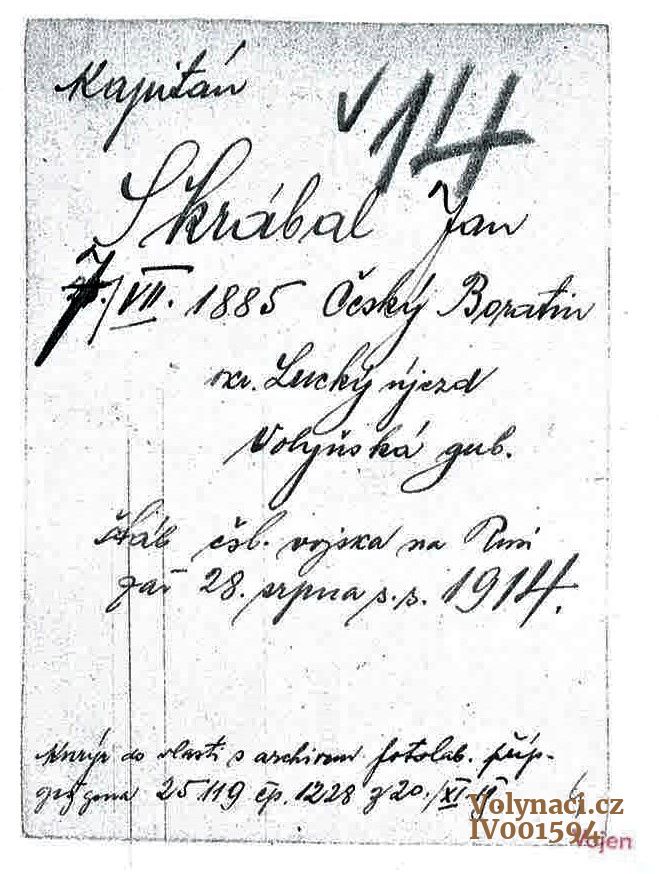 Kapitán
v 14
Skrábal Jan
7./VII. 1885 Český Boratin
okr. Lucký újezd
Volyňská gub.
štáb čsl. vojska na Rusi
zař 28. srpna s.s. 1914.
Kurýr do vlasti s archivem fotolab. příp-
25119 čp. 1228 z 20./XI
Volynaci.cz
IV001594
Vojen